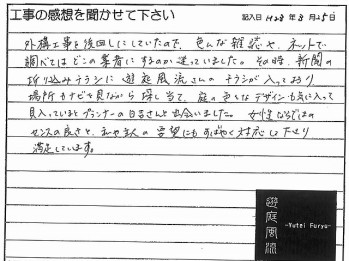 工事の感想を聞かせて下さい
記入日 H28年8月25日
外構工事を後回しにしていたので、色んな雑誌や、ネットで
調べてはどこの業者にするのか迷っていました。その時、新聞の
折り込みチラシに遊庭風流さんのチラシが入っており
場所カナビを見ながら探し当て、庭の色々なデザインも気に入って
見入っているとプランナーの白吉さんと出会いました。女性ならではの
センスの良さと、私や主人の要望にもすばやく対応して下さり
満足しています。
遊庭風流
-Yutei Furyu-